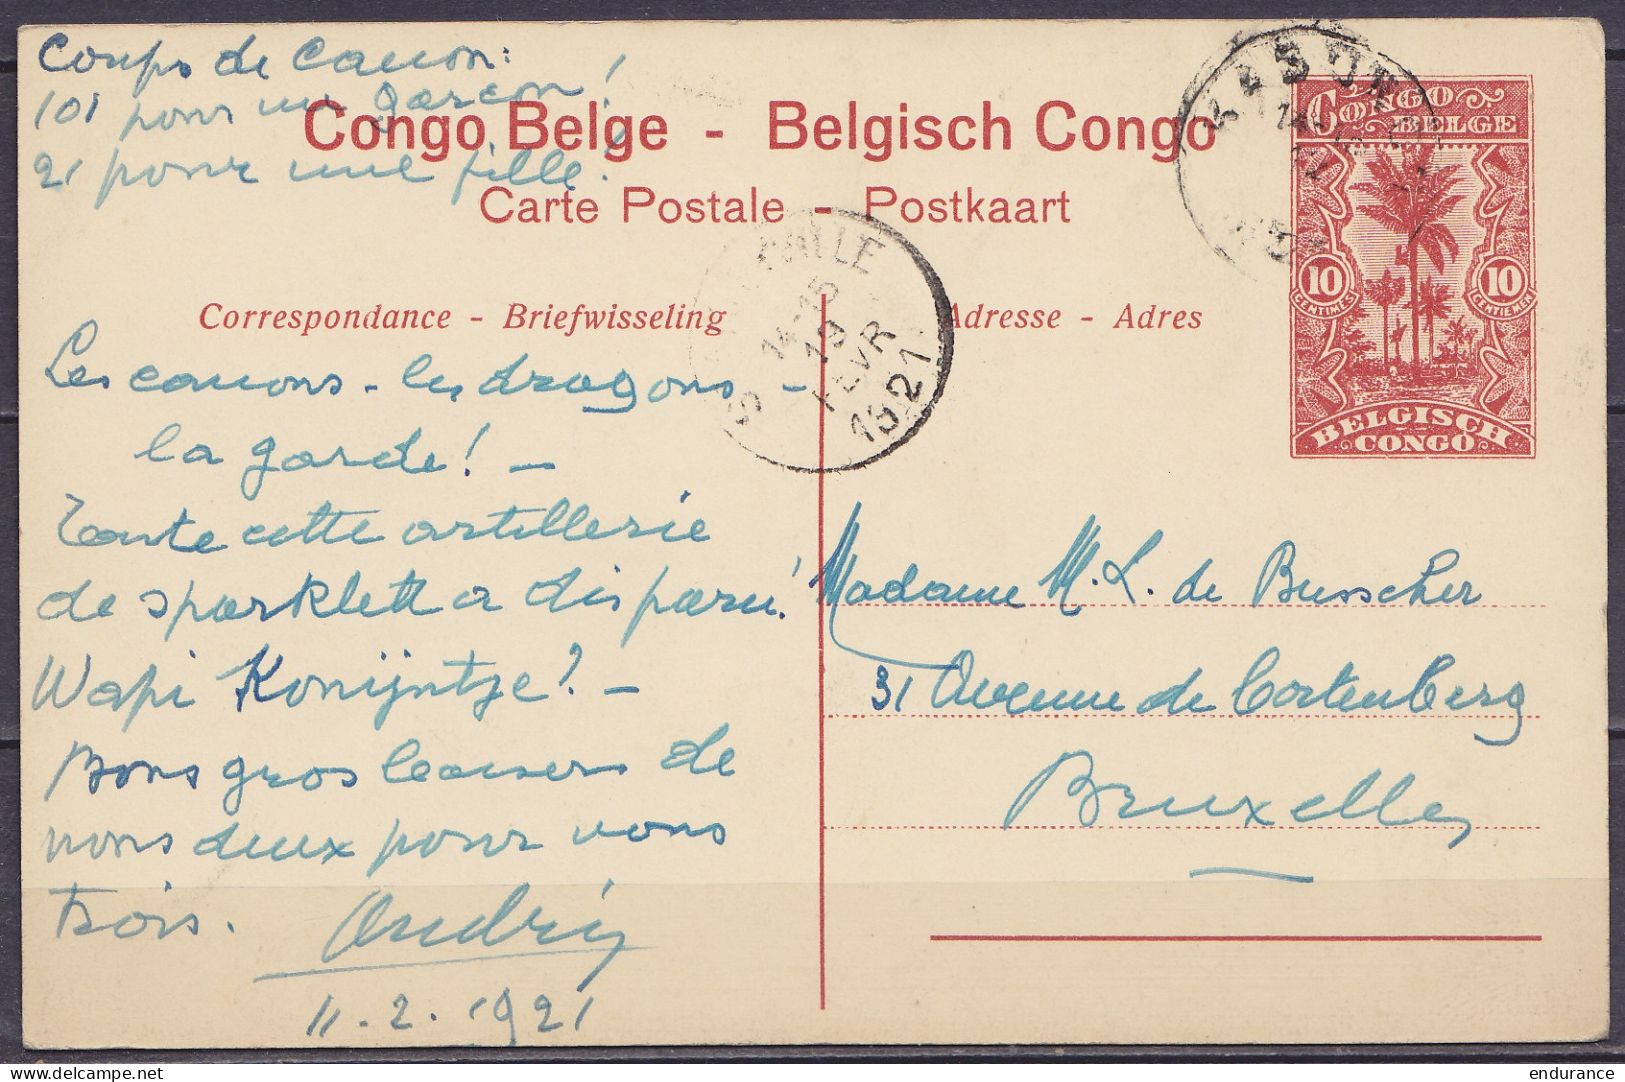 Coups de canon:
101 pour un garçon!
21 pour une fille!
Congo Belge - Belgisch Congo
Carte Postale - Postkaart
Correspondance - Briefwisseling
Adresse - Adres
CONGO
BELGE
10 CENTIMES
10 CENTIEMEN
BELGISCH
CONGO
VILLE
14-15
19
FEVR
1921
Les canons - les dragons -
la garde! -
Toute cette artillerie
de sparklett a disparu!
Wapi Konijntje? -
Bons gros baisers de
nous deux pour vous
trois.
11.2.1921
Madame M. L. de Busscher
31 Avenue de Cortenberg
Bruxelles
delcampe.net
endurance